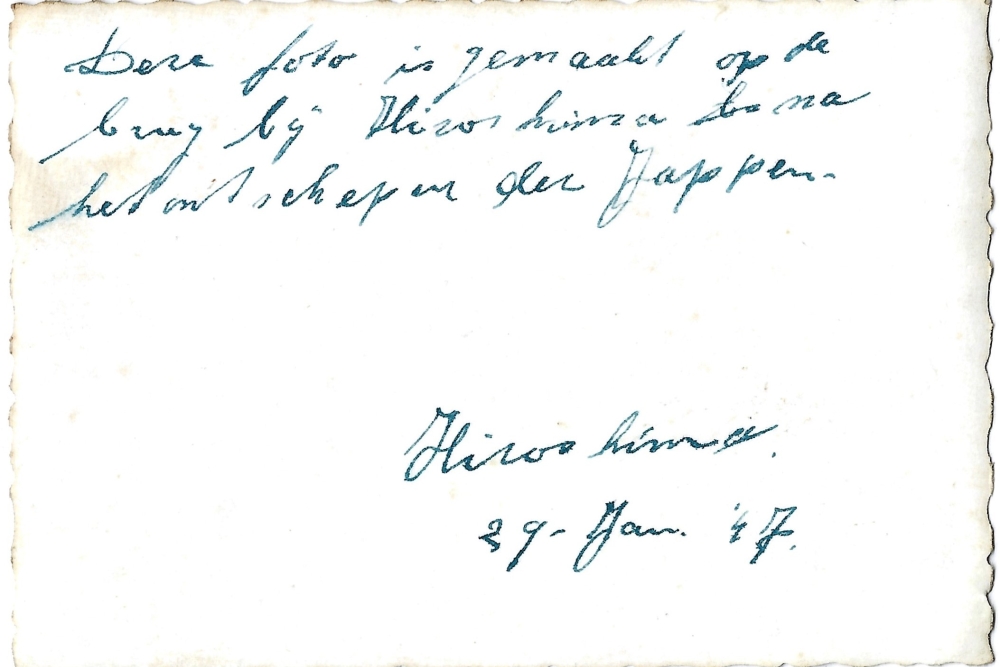 Deze foto is gemaakt op de
brug bij Hiroshima na
het ontschepen der Jappen.
Hiroshima.
29 - Jan. '47.